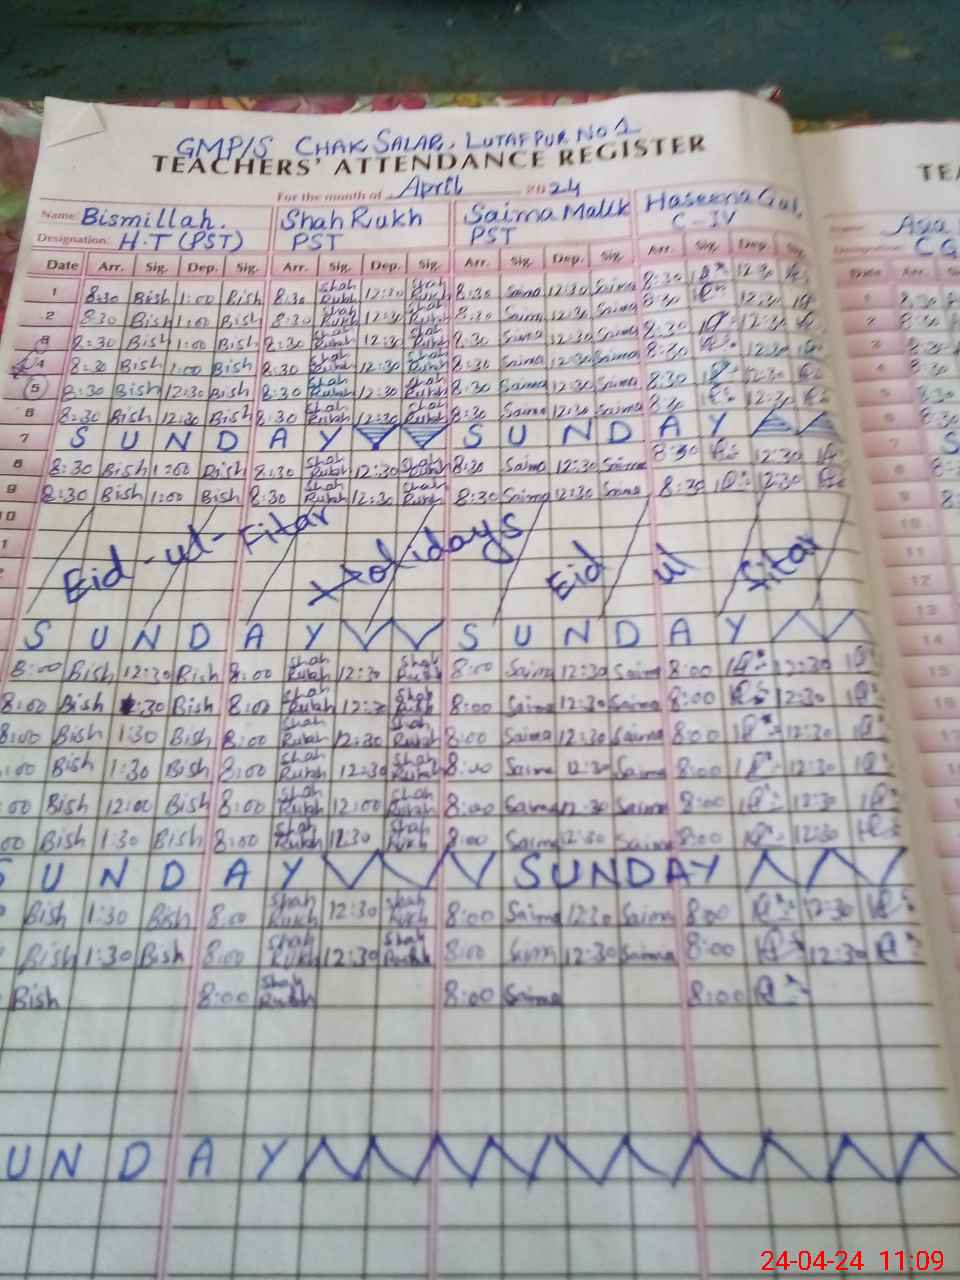 GMP/S CHAK SALAR, LUTAFPUR NO 1
TEACHERS' ATTENDANCE REGISTER
For the month of April 2024
Name: Bismillah. Shah Rukh Saima Malik Haseena Gul,
Designation: H.T (PST) PST PST C-IV
Date Arr. Sig. Dep. Sig. Arr. Sig. Dep. Sig. Arr. Sig. Dep. Sig. Arr. Sig. Dep. Sig.
1 8:30 Bish 1:00 Bish 8:30 Shah Rukh 12:30 Shah Rukh 8:30 Saima 12:30 Saima 8:30 12:30
2 8:30 Bish 1:00 Bish 8:30 Shah Rukh 12:30 Shah Rukh 8:30 Saima 12:30 Saima 8:30 12:30
3 8:30 Bish 1:00 Bish 8:30 Shah Rukh 12:30 Shah Rukh 8:30 Saima 12:30 Saima 8:30 12:30
4 8:30 Bish 1:00 Bish 8:30 Shah Rukh 12:30 Shah Rukh 8:30 Saima 12:30 Saima 8:30 12:30
5 8:30 Bish 12:30 Bish 8:30 Shah Rukh 12:30 Shah Rukh 8:30 Saima 12:30 Saima 8:30 12:30
6 8:30 Bish 12:30 Bish 8:30 Shah Rukh 12:30 Shah Rukh 8:30 Saima 12:30 Saima 8:30 12:30
7 SUNDAY SUNDAY
8 8:30 Bish 1:00 Bish 8:30 Shah Rukh 12:30 Shah Rukh 8:30 Saima 12:30 Saima 8:30 12:30
9 8:30 Bish 1:00 Bish 8:30 Shah Rukh 12:30 Shah Rukh 8:30 Saima 12:30 Saima 8:30 12:30
10
Eid-ul-Fitar Holidays Eid ul fitar
SUNDAY SUNDAY
8:00 Bish 12:30 Bish 8:00 Shah Rukh 12:30 Shah Rukh 8:00 Saima 12:30 Saima 8:00 12:30
8:00 Bish 1:30 Bish 8:00 Shah Rukh 12:30 Shah Rukh 8:00 Saima 12:30 Saima 8:00 12:30
8:00 Bish 1:30 Bish 8:00 Shah Rukh 12:30 Shah Rukh 8:00 Saima 12:30 Saima 8:00 12:30
:00 Bish 1:30 Bish 8:00 Shah Rukh 12:30 Shah Rukh 8:00 Saima 12:30 Saima 8:00 12:30
00 Bish 12:00 Bish 8:00 Shah Rukh 12:00 Shah Rukh 8:00 Saima 12:30 Saima 8:00 12:30
00 Bish 1:30 Bish 8:00 Shah Rukh 12:30 Shah Rukh 8:00 Saima 12:30 Saima 8:00 12:30
SUNDAY SUNDAY
Bish 1:30 Bish 8:00 Shah Rukh 12:30 Shah Rukh 8:00 Saima 12:30 Saima 8:00 12:30
Bish 1:30 Bish 8:00 Shah Rukh 12:30 Shah Rukh 8:00 Saima 12:30 Saima 8:00 12:30
Bish 8:00 Shah Rukh 8:00 Saima 8:00
UNDAY
TEA
Asia
CG
Date Arr.
10
11
12
13
14
15
16
24-04-24 11:09